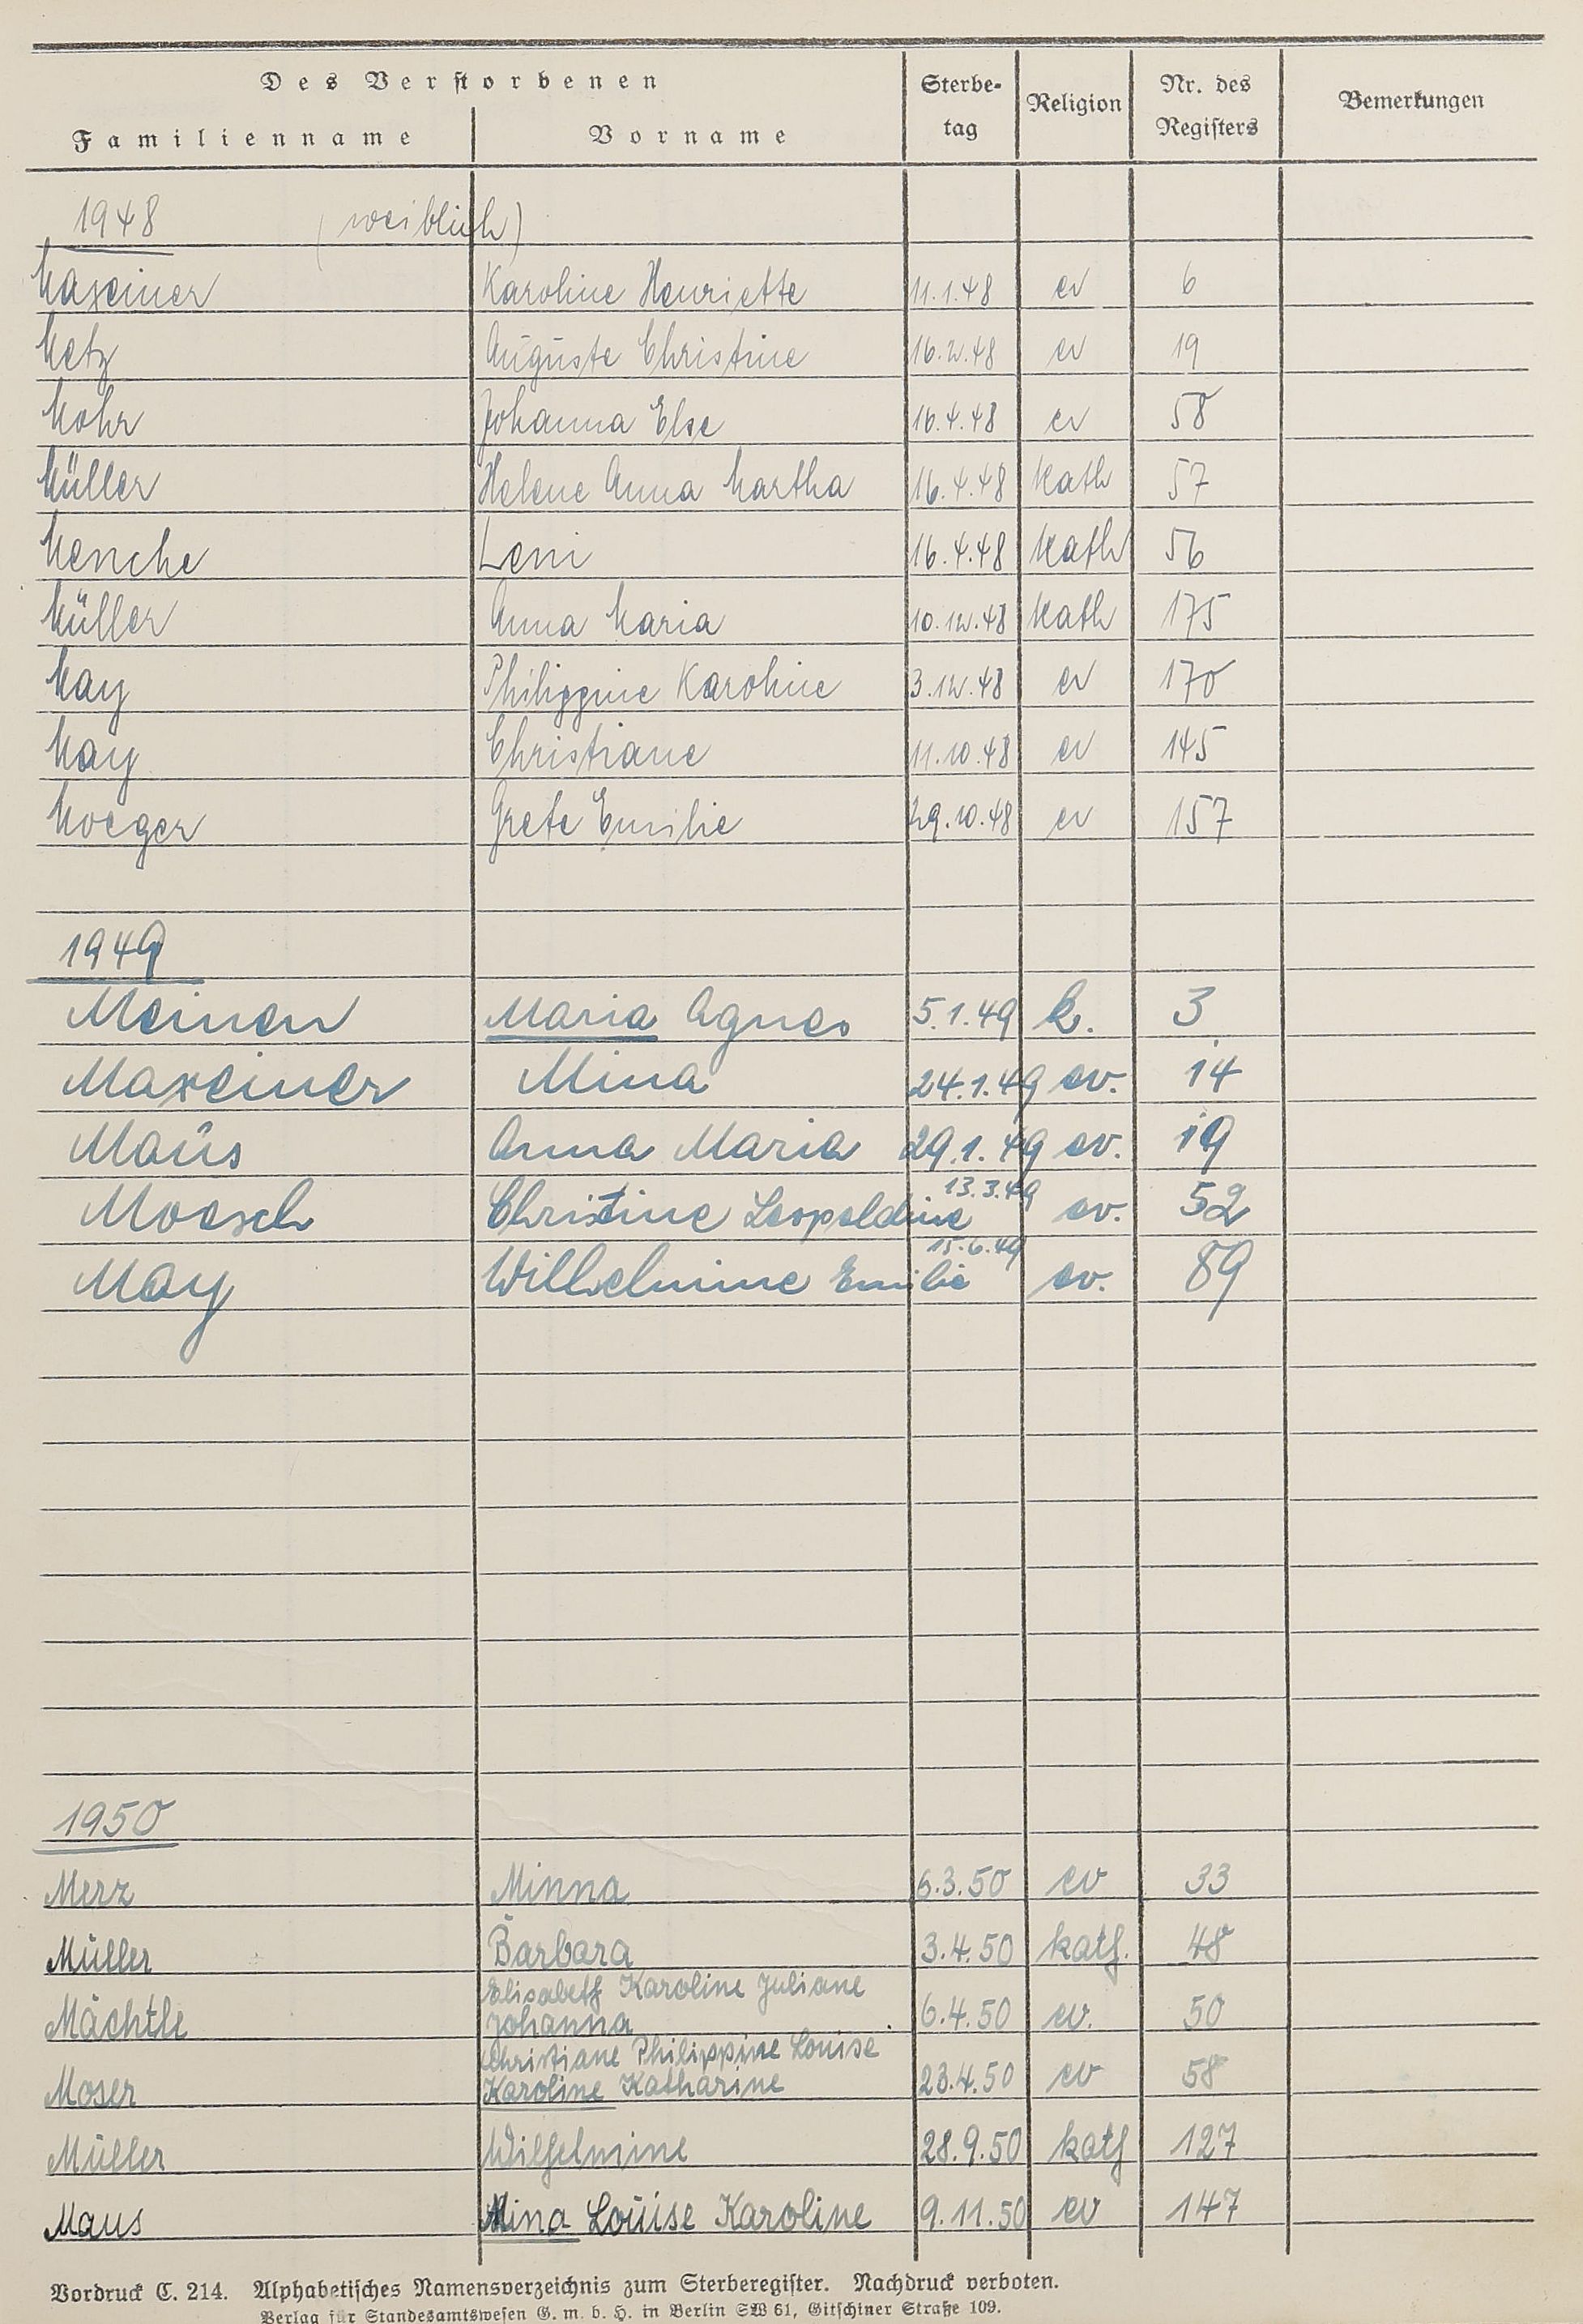 Des Verstorbenen
Familienname Vorname Sterbe-tag Religion Nr. des Registers Bemerkungen
1948 (weiblich)
Maxeiner Karoline Henriette 11.1.48 ev 6
Metz Auguste Christine 16.2.48 ev 19
Mohr Johanna Else 16.4.48 ev 58
Müller Helene Anna Martha 16.4.48 kath 57
Menche Leni 16.4.48 kath 56
Müller Anna Maria 10.12.48 kath 175
May Philippine Karoline 3.12.48 ev 170
May Christiane 11.10.48 ev 145
Moeger Grete Emilie 29.10.48 ev 157
1949
Meinen Maria Agnes 5.1.49 k. 3
Maxeiner Mina 24.1.49 ev. 14
Maus Anna Maria 29.1.49 ev. 19
Moesch Christine Leopoldine 13.3.49 ev. 52
May Wilhelmine Emilie 15.6.49 ev. 89
1950
Merz Minna 6.3.50 ev 33
Müller Barbara 3.4.50 kath. 48
Elisabeth Karoline Juliane
Mächtle Johanna 6.4.50 ev. 50
Christiane Philippine Louise
Moser Karoline Katharine 23.4.50 ev 58
Müller Wilhelmine 28.9.50 kath 127
Maus Mina Louise Karoline 9.11.50 ev 147
Vordruck C. 214. Alphabetisches Namensverzeichnis zum Sterberegister. Nachdruck verboten.
Verlag für Standesamtswesen G. m. b. H. in Berlin SW 61, Gitschiner Straße 109.